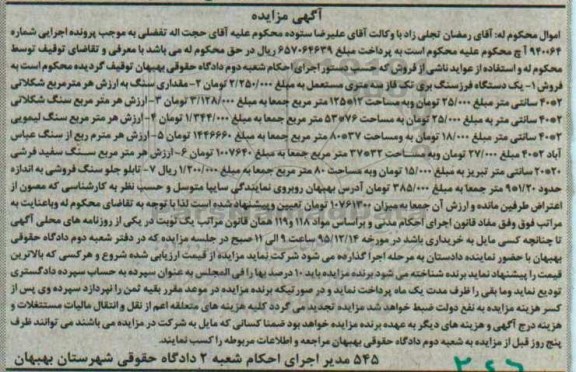 آگهی مزایده
اموال محکوم له: آقای رمضان تجلی زاد با وکالت آقای علیرضا ستوده محکوم علیه آقای حجت اله تفضلی به موجب پرونده اجرایی شماره
۹۴۰۰۶۴ آ ج محکوم علیه محکوم است به پرداخت مبلغ ۶۵۷۰۶۴۶۳۹ ریال در حق محکوم له می باشد با معرفی و تقاضای توقیف توسط
محکوم له و استفاده از عواید ناشی از فروش که حسب دستور اجرای احکام شعبه دوم دادگاه حقوقی بهبهان توقیف گردیده محکوم است به
فروش ۱- یک دستگاه فرزسنگ بری تک فاز سه متری مستعمل به مبلغ ۲/۲۵۰/۰۰۰ تومان ۲- مقداری سنگ به ارزش هر مترمربع شکلاتی
۲*۴۰ سانتی متر مبلغ ۲۵/۰۰۰ تومان وبه مساحت ۱۲*۱۲۵ متر مربع جمعا به مبلغ ۳/۱۲۸/۰۰۰ تومان ۳- ارزش هر متر مربع سنگ شکلاتی
۲*۴۰ سانتی متر به مبلغ ۲۵/۰۰۰ تومان به مساحت ۷۶*۵۳ متر مربع جمعا به مبلغ ۱/۳۴۴/۰۰۰ تومان ۴- ارزش هر متر مربع سنگ لیمویی
۲*۴۰ سانتی متر مبلغ ۱۸/۰۰۰ تومان به ومساحت ۳۷*۸۰ متر مربع جمعا به مبلغ ۱۴۴۶۶۶۰ تومان ۵- ارزش هر مترم ربع از سنگ عباس
آباد ۲*۴۰ مبلغ ۲۷/۰۰۰ تومان وبه مساحت ۳۲*۳۷ متر مربع جمعا به مبلغ ۱۰۰۷۶۴۰ تومان ۶- ارزش هر متر مربع سنگ سفید فرشی
۲۰*۲۰ سانتی متر تبریز به مبلغ ۱۵/۰۰۰ تومان وبه مساحت ۸۰ متر مربع جمعا به مبلغ ۱/۲۰۰/۰۰۰ ریال ۷- تابلو جلو سنگ فروشی به اندازه
حدود ۱/۲۰*۹ متر جمعا به مبلغ ۳۸۵/۰۰۰ تومان آدرس بهبهان روبروی نمایندگی سایپا متوسل و حسب نظر به کارشناسی که مصون از
اعتراض طرفین مانده و ارزش آن جمعا به میزان ۱۰۷۶۱۳۰۰ تومان تعیین وپیشنهاد شده است لذا با توجه به تقاضای محکوم له وباعنایت به
مراتب فوق وفق مفاد قانون اجرای احکام مدنی و براساس مواد ۱۱۸ و۱۱۹ همان قانون مراتب یک نوبت در یکی از روزنامه های محلی آگهی
تا چنانچه کسی مایل به خریداری باشد در مورخه ۹۵/۱۲/۱۴ ساعت ۹ الی ۱۱ صبح در جلسه مزایده که در دفتر شعبه دوم دادگاه حقوقی
بهبهان با حضور نماینده دادستان به مرحله اجرا گذارده می شود شرکت نماید مزایده از قیمت ارزیابی شده شروع و هرکسی که بالاترین
قیمت را پیشنهاد نماید برنده شناخته می شود برنده مزایده باید ۱۰ درصد بها را فی المجلس به عنوان سپرده به حساب سپرده دادگستری
تودیع نماید وما بقی را ظرف مدت یک ماه پرداخت نماید و در صورتیکه برنده مزایده در موعد مقرر بقیه ثمن را نپردازد سپرده وی پس از
کسر هزینه مزایده به نفع دولت ضبط خواهد شد مزایده تجدید می گردد کلیه هزینه های متعلقه اعم از نقل و انتقال مالیات مستغلات و
هزینه درج آگهی و هزینه های دیگر به عهده برنده مزایده خواهد بود ضمنا کسانی که مایل به شرکت در مزایده می باشند می توانند ظرف
پنج روز قبل از مزایده به شعبه دوم دادگاه حقوقی بهبهان مراجعه و اطلاعات مربوطه را کسب نمایند.
۵۴۵ مدیر اجرای احکام شعبه ۲ دادگاه حقوقی شهرستان بهبهان